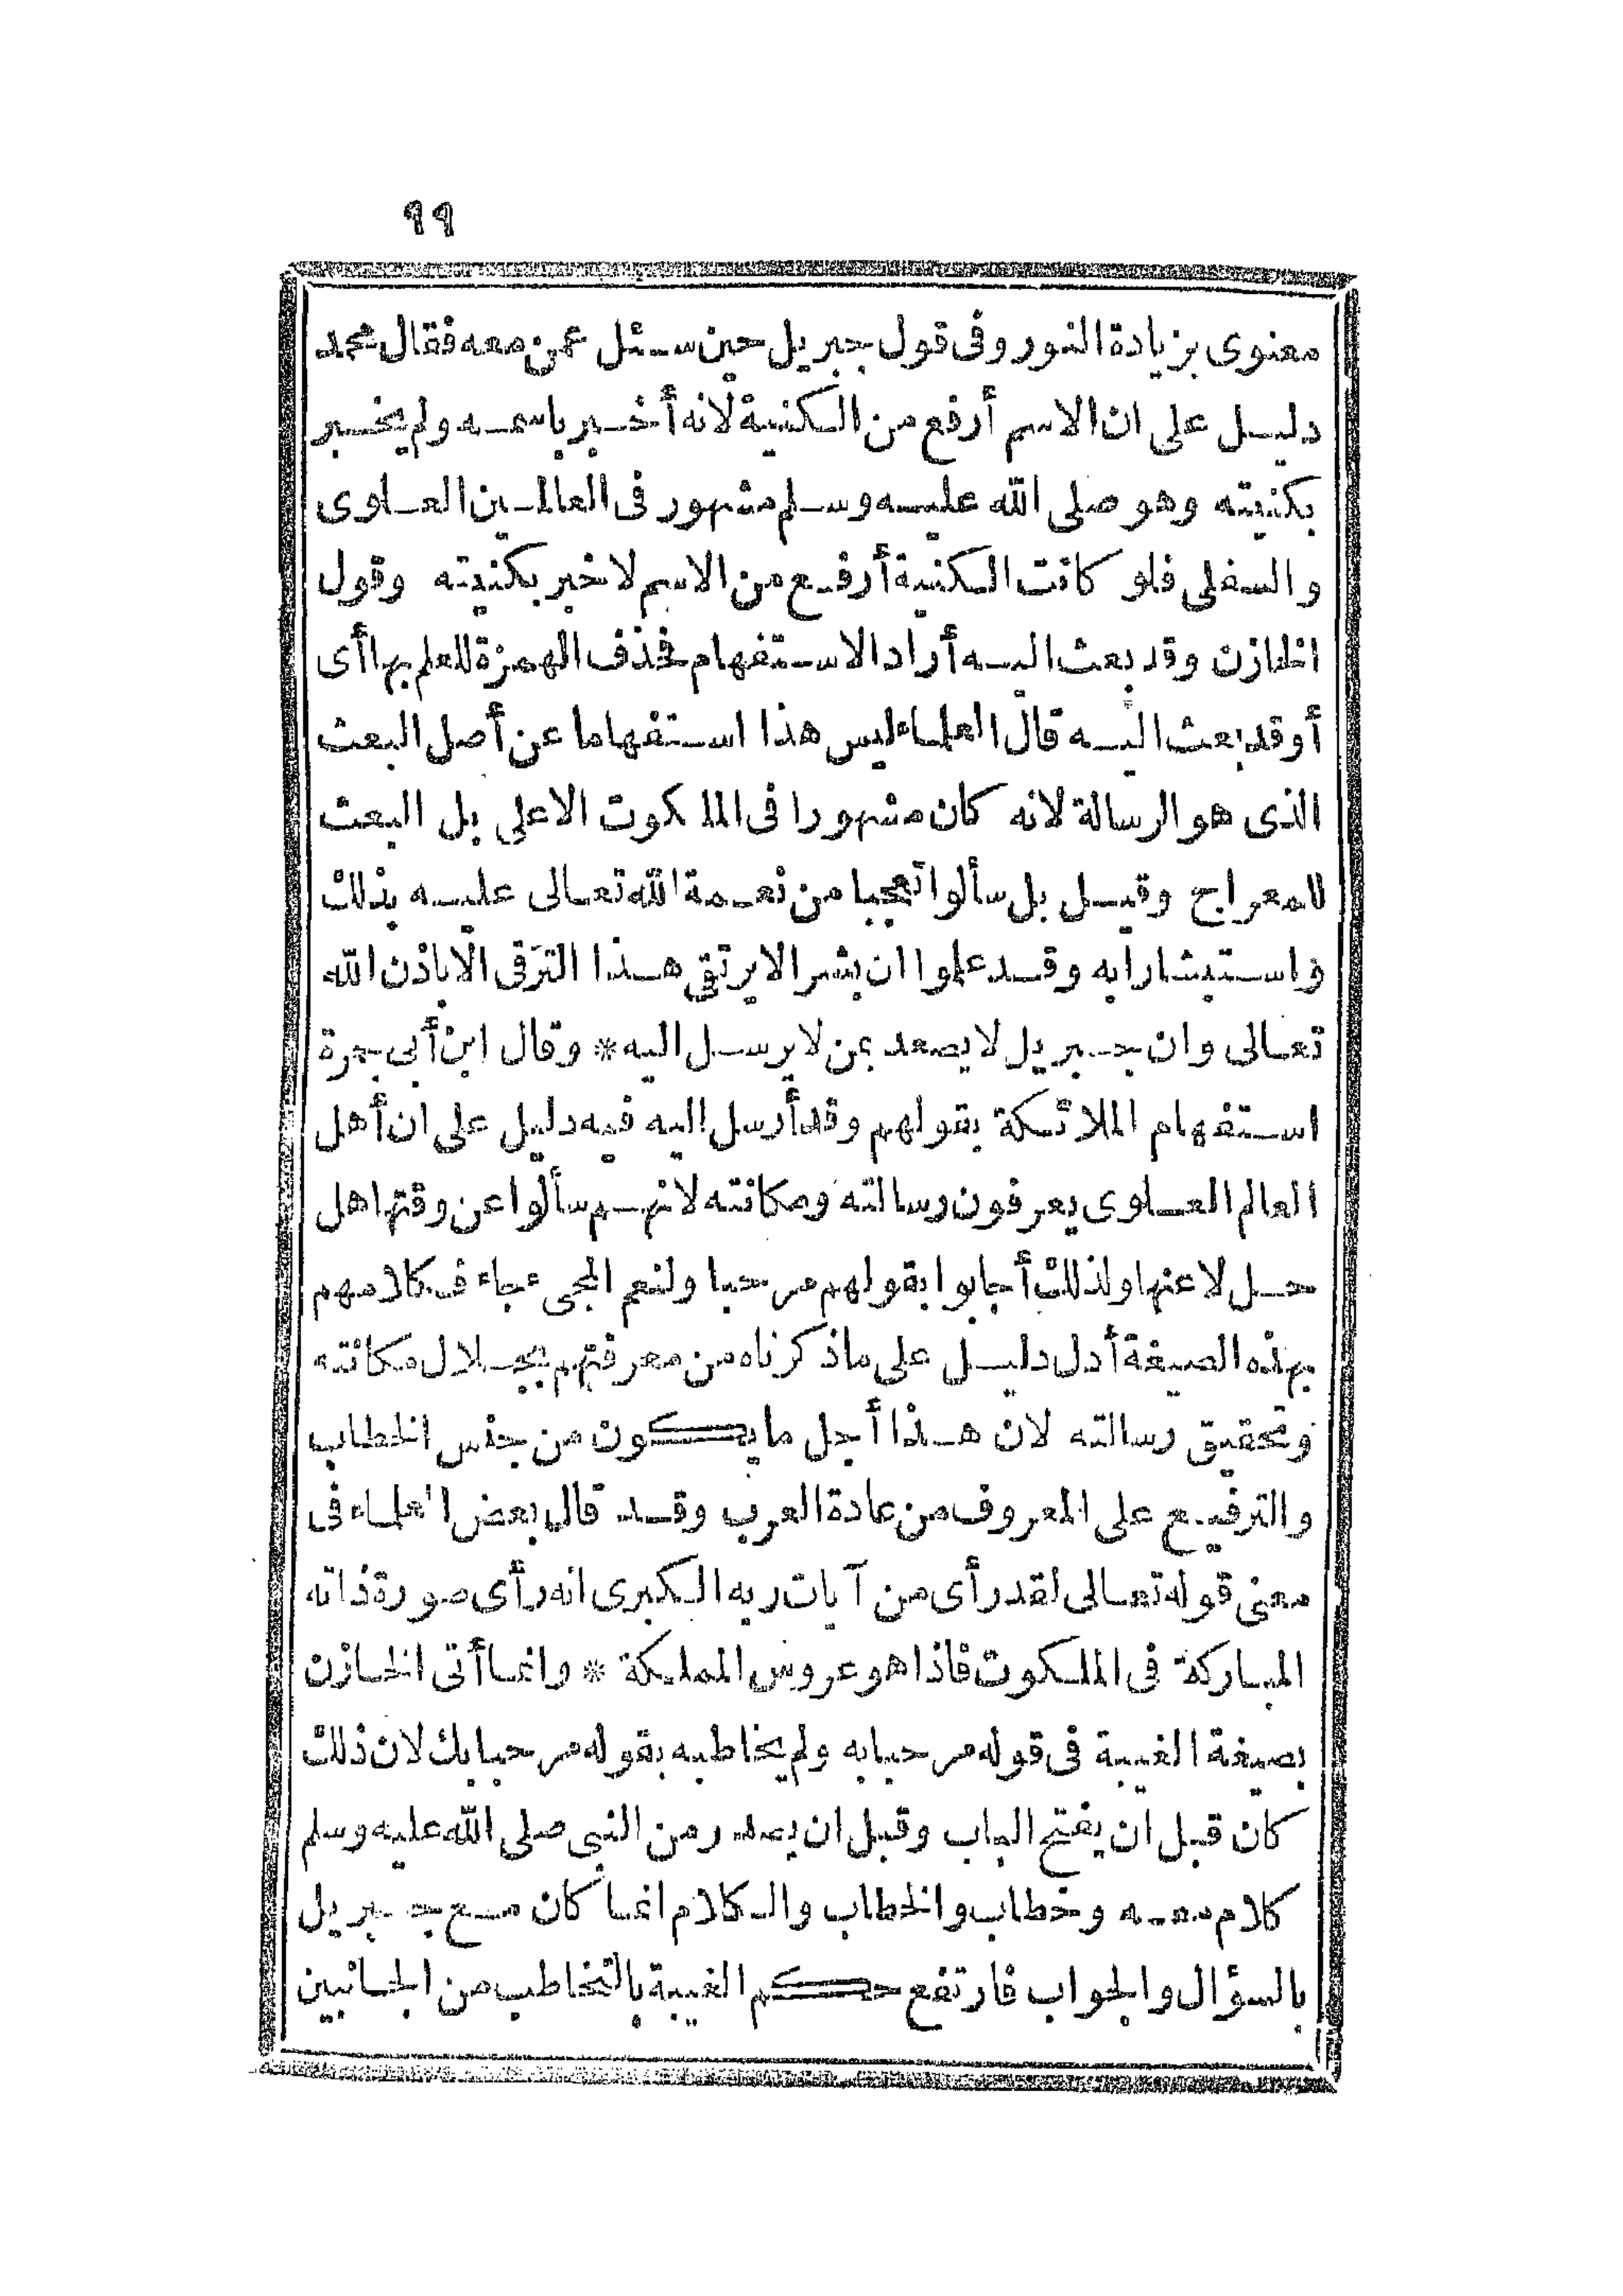 ٩٩
معنوى بزيادة النور وفى قول جبريل حين سئل عمن معه فقال محمد
دليل على ان الاسم أرفع من الكنية لانه أخبر باسمه ولم يخبر
بكنيته وهو صلى الله عليه وسلم مشهور فى العالمين العلوى
والسفلى فلو كانت الكنية أرفع من الاسم لاخبر بكنيته وقول
الخازن وقد بعث اليه أراد الاستفهام فحذف الهمزة للعلم بها أى
أوقد بعث اليه قال العلماء ليس هذا استفهاما عن أصل البعث
الذى هو الرسالة لانه كان مشهورا فى الملكوت الاعلى بل البعث
للمعراج وقيل بل سألوا تعجبا من نعمة الله تعالى عليه بذلك
واستبشارا به وقد علموا ان بشرا لا يرتقى هذا الترقى الا باذن الله
تعالى وان جبريل لا يصعد بمن لا يرسل اليه * وقال ابن أبى جمرة
استفهام الملائكة بقولهم وقد أرسل اليه فيه دليل على ان أهل
العالم العلوى يعرفون رسالته ومكانته لانهم سألوا عن وقتها هل
حل لا عنها ولذلك أجابوا بقولهم مرحبا ولنعم المجىء جاء فكلامهم
بهذه الصيغة أدل دليل على ماذكرناه من معرفتهم بجلال مكانته
وتحقيق رسالته لان هذا أجل ما يكون من جنس الخطاب
والترفيع على المعروف من عادة العرب وقد قال بعض العلماء فى
معنى قوله تعالى لقد رأى من آيات ربه الكبرى انه رأى صورة ذاته
المباركة فى الملكوت فاذا هو عروس المملكة * وانما أتى الخازن
بصيغة الغيبة فى قوله مرحبا به ولم يخاطبه بقوله مرحبا بك لان ذلك
كان قبل ان يفتح الباب وقبل ان يصدر من النبى صلى الله عليه وسلم
كلام معه وخطاب والخطاب والكلام انما كان مع جبريل
بالسؤال والجواب فارتفع حكم الغيبة بالتخاطب من الجانبين